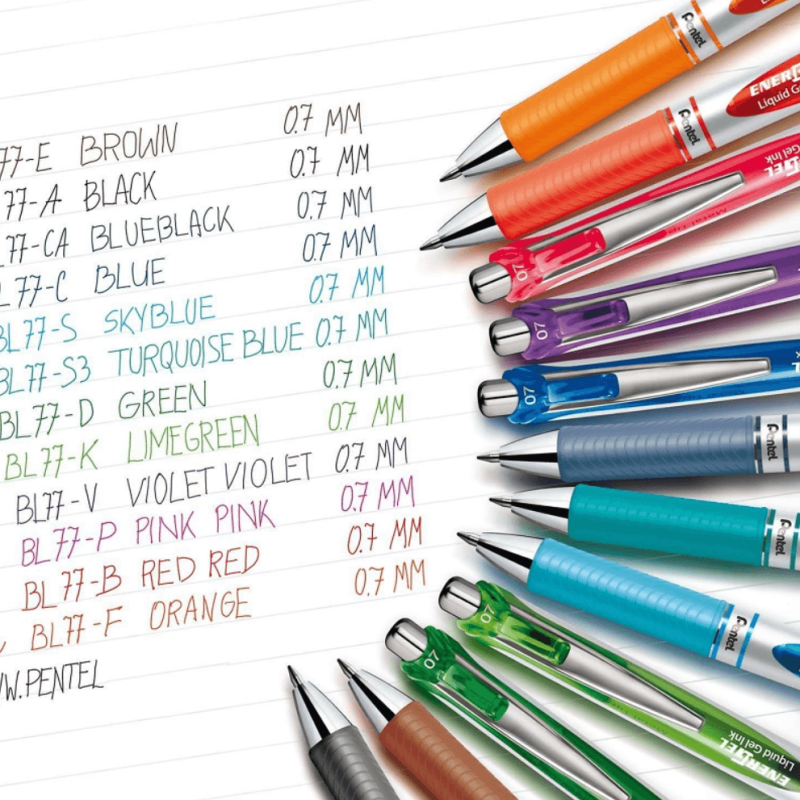 77-E BROWN 0.7 MM
77-A BLACK 0.7 MM
77-CA BLUEBLACK 0.7 MM
L77-C BLUE 0.7 MM
BL77-S SKYBLUE 0.7 MM
BL77-S3 TURQUOISE BLUE 0.7 MM
BL77-D GREEN 0.7 MM
BL77-K LIMEGREEN 0.7 MM
BL77-V VIOLET VIOLET 0.7 MM
BL77-P PINK PINK 0.7 MM
BL77-B RED RED 0.7 MM
BL77-F ORANGE 0.7 MM
WW.PENTEL
Pentel
Pentel
ENER
Liquid G
ENERGEL
Gel Ink
07
07
07
Pentel
Pentel
Pentel
07
07
ENERGEL
Liquid Gel Ink